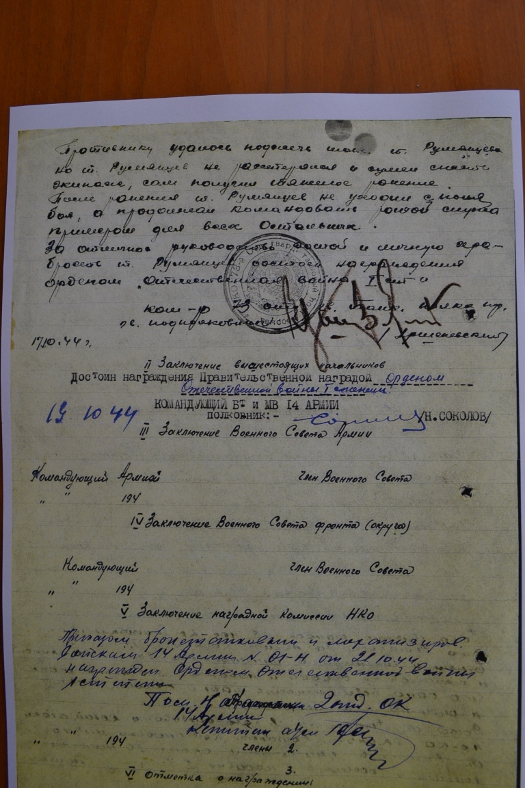 Противнику удалось поджечь танк т. Румянцева
но т. Румянцев не растерялся и сумел спасти
экипаж, сам получил тяжелое ранение.
После ранения т. Румянцев не уходил с поля
боя, а продолжал командовать ротой служа
примером для всех остальных.
За отличное руководство ротой и личную храб-
брость т. Румянцев достоин награждения
орденом „Отечественная война I ст."
ком-р тяж. танк. полка пр.
гв. подполковник
Хрисановский
17.10.44 г.
II Заключение вышестоящих начальников
Достоин награждения Правительственной наградой Орденом
Отечественной войны I степени
КОМАНДУЮЩИЙ БТ и МВ 14 АРМИИ
19.10.44
ПОЛКОВНИК:-
/Н. СОКОЛОВ/
III Заключение Военного Совета Армии
Командующий Армией
Член Военного Совета
" " 194
IV Заключение Военного Совета фронта (округа)
Командующий
Член Военного Совета
" 194
V Заключение наградной комиссии НКО
Приказом бронетанковым и механизиров.
войскам 14 Армии № 01-Н от 21.10.44
награжден Орденом Отечественной войны
I степени
2 отд. ОК
14 Армии
Капитан а/сл
" " 194
члены 2.
3.
VI Отметка о награждении: